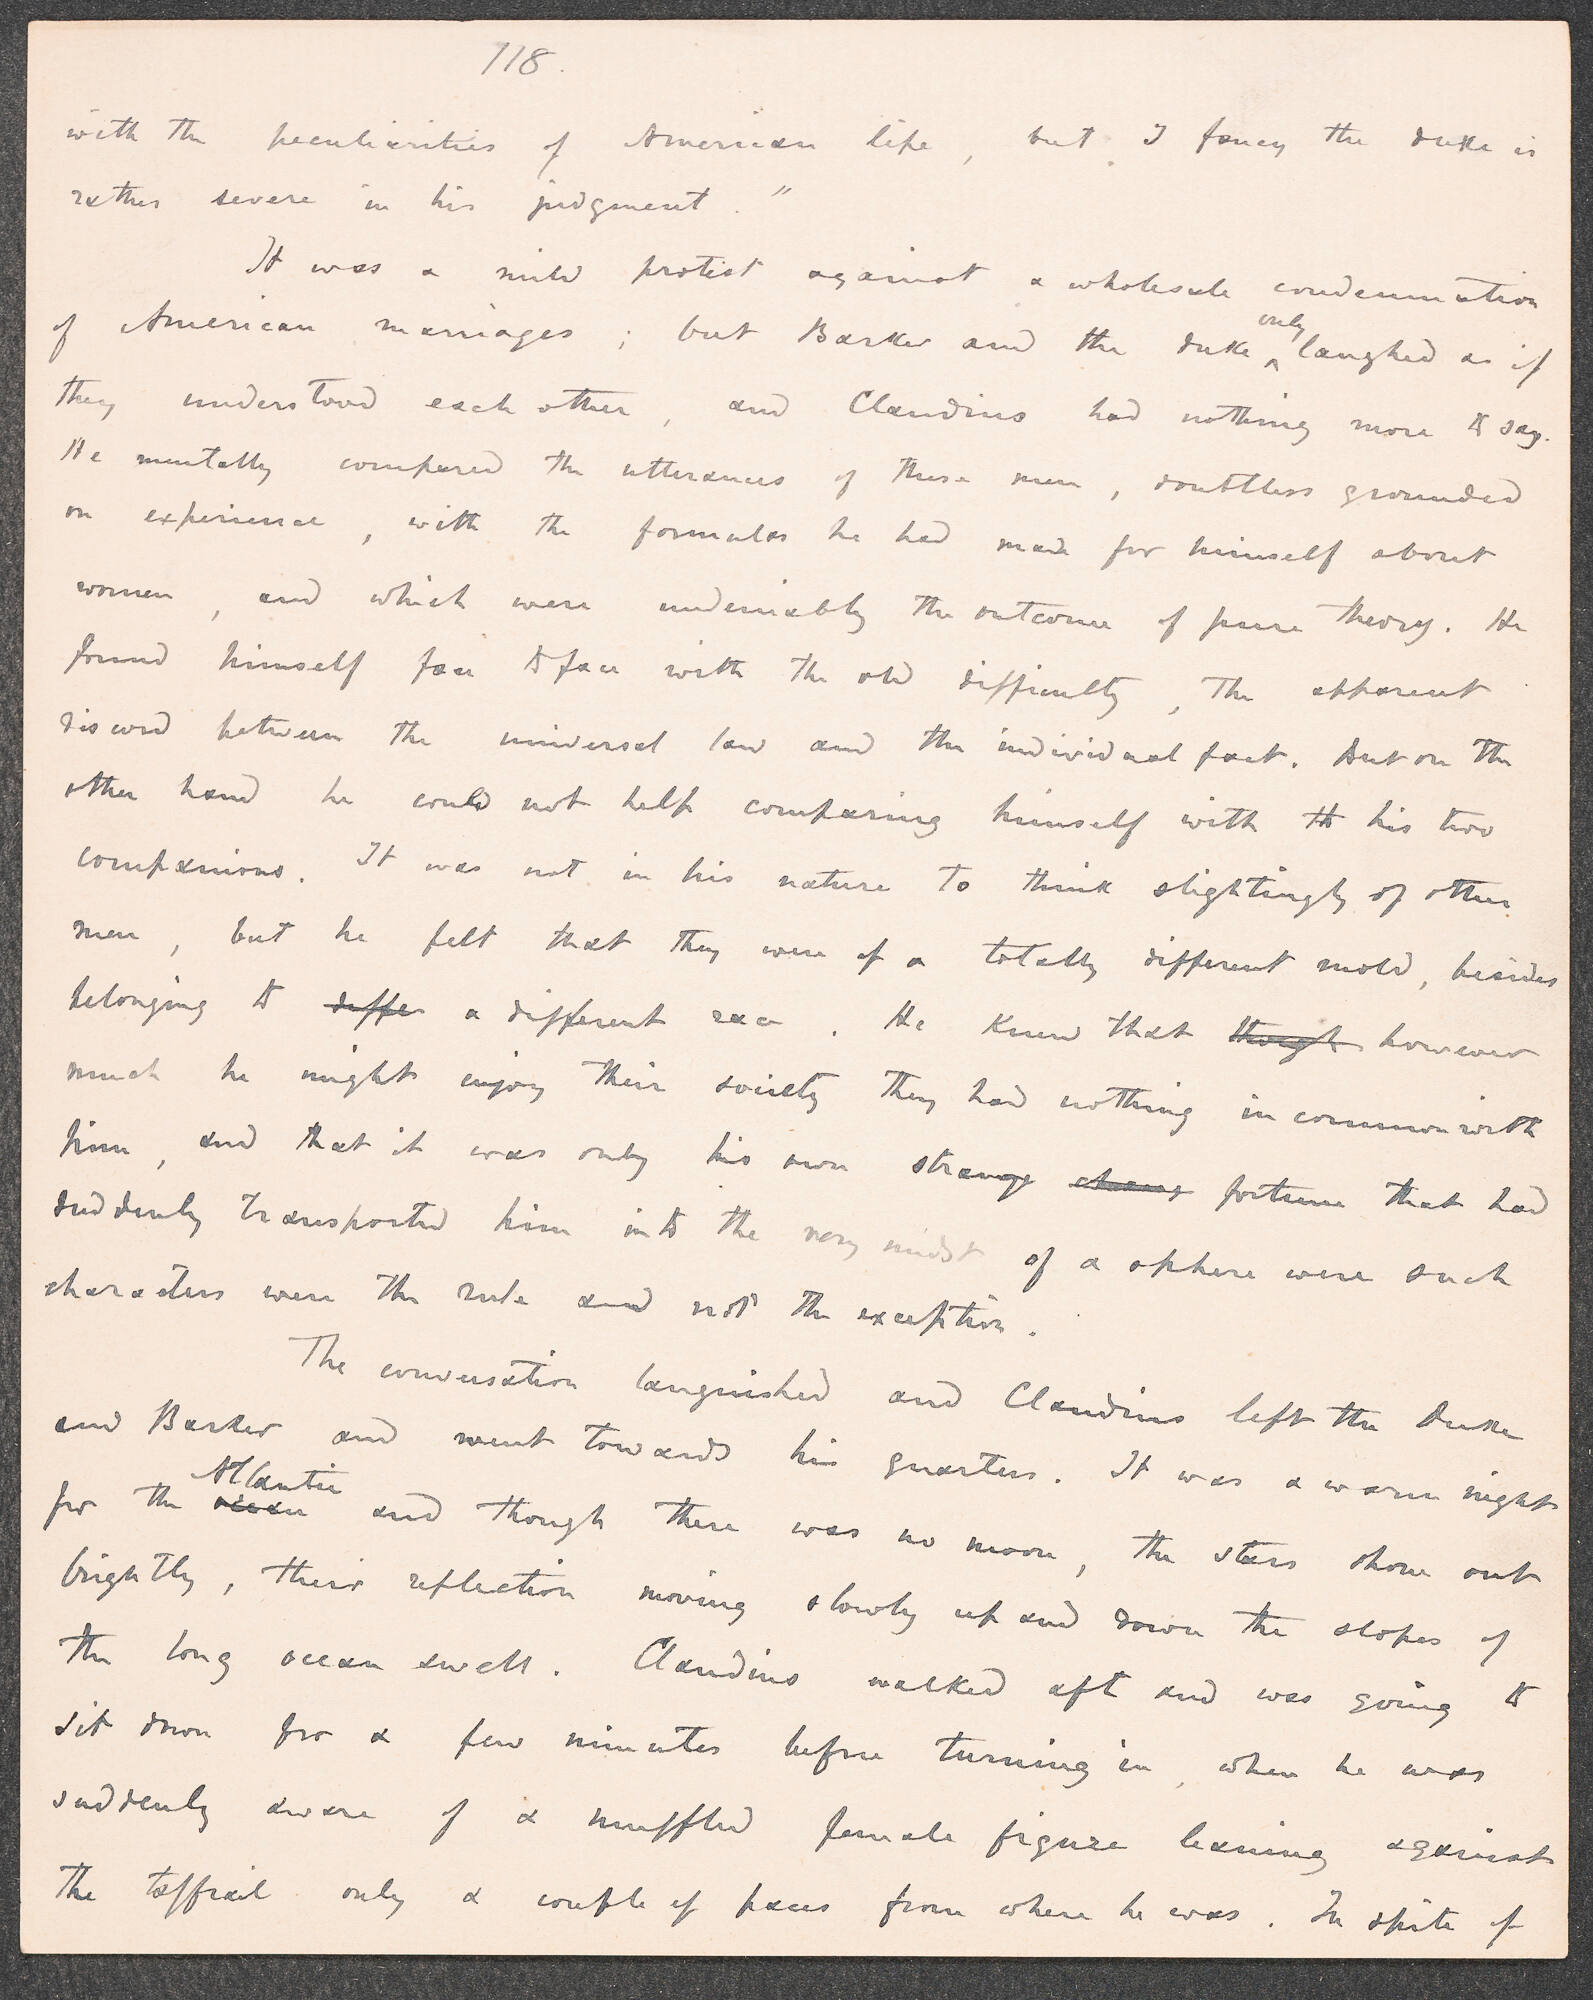 118.
with the peculiarities of American life, but I fancy the duke is
rather severe in his judgment."
It was a mild protest against a wholesale condemnation
of American marriages; but Barker and the duke only laughed as if
they understood each other, and Claudius had nothing more to say.
He mentally compared the utterances of these men, doubtless grounded
on experience, with the formulas he had made for himself about
women, and which were undeniably the outcome of pure theory. He
found himself face to face with the old difficulty, the apparent
discord between the universal law and the individual fact. But on the
other hand he could not help comparing himself with th his two
companions. It was not in his nature to think slightingly of other
men, but he felt that they were of a totally different mold, besides
belonging to diffe a different race. He knew that though however
much he might enjoy their society they had nothing in common with
him, and that it was only his own strange chang fortune that had
suddenly transported him into the very midst of a sphere were such
characters were the rule and not the exception.
The conversation languished and Claudius left the Duke
and Barker and went towards his quarters. It was a warm night
for the ocean Atlantic and though there was no moon, the stars shone out
brightly, their reflection moving slowly up and down the slopes of
the long ocean swell. Claudius walked aft and was going to
sit down for a few minutes before turning in, when he was
suddenly aware of a muffled female figure leaning against
the taffrail only a couple of paces from where he was. In spite of